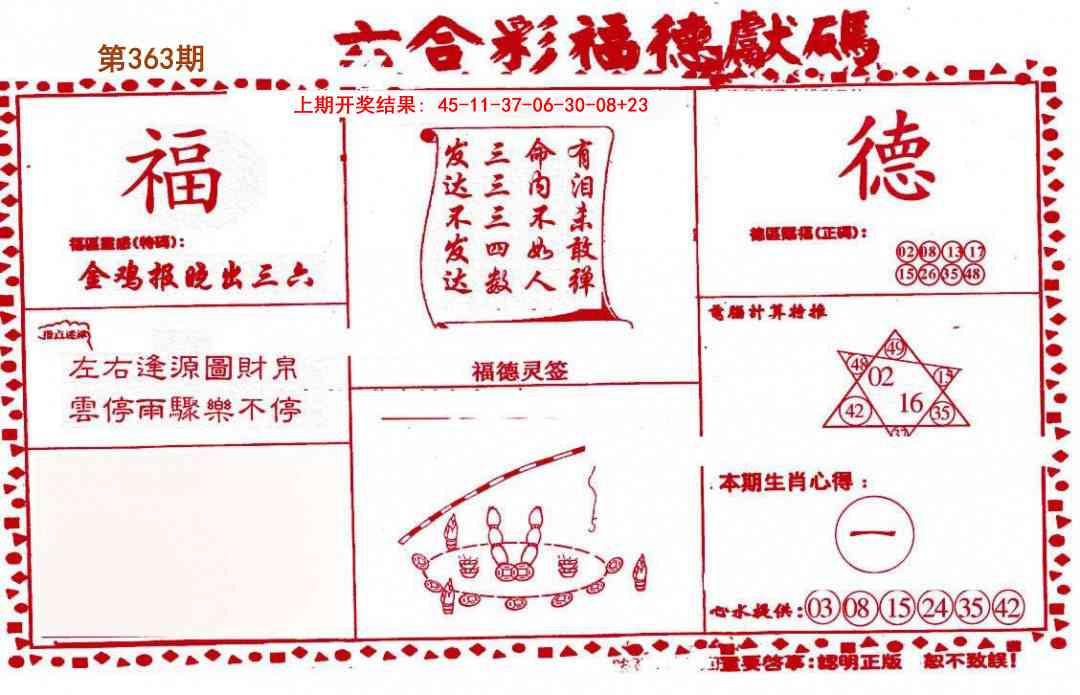 第363期
六合彩福德獻碼
上期开奖结果: 45-11-37-06-30-08+23
福
福區靈感(特碼):
金鸡报晚出三六
左右逢源圖財帛
雲停雨驟樂不停
有泪未敢弹
命内不如人
三三三四数
发达不发达
福德灵签
德
德區賜福(正碼):
02 08 13 17
15 26 35 48
電腦計算特推
49
48 02 15
42 16 35
本期生肖心得:
一
心水提供: 03 08 15 24 35 42
重要啓事:認明正版 恕不致誤!